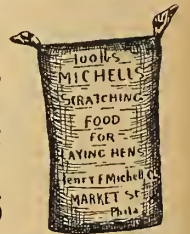 100 lbs
MICHELLS
SCRATCHING
FOOD
FOR
LAYING HENS
Henry F Michell Co
MARKET St.
Phila